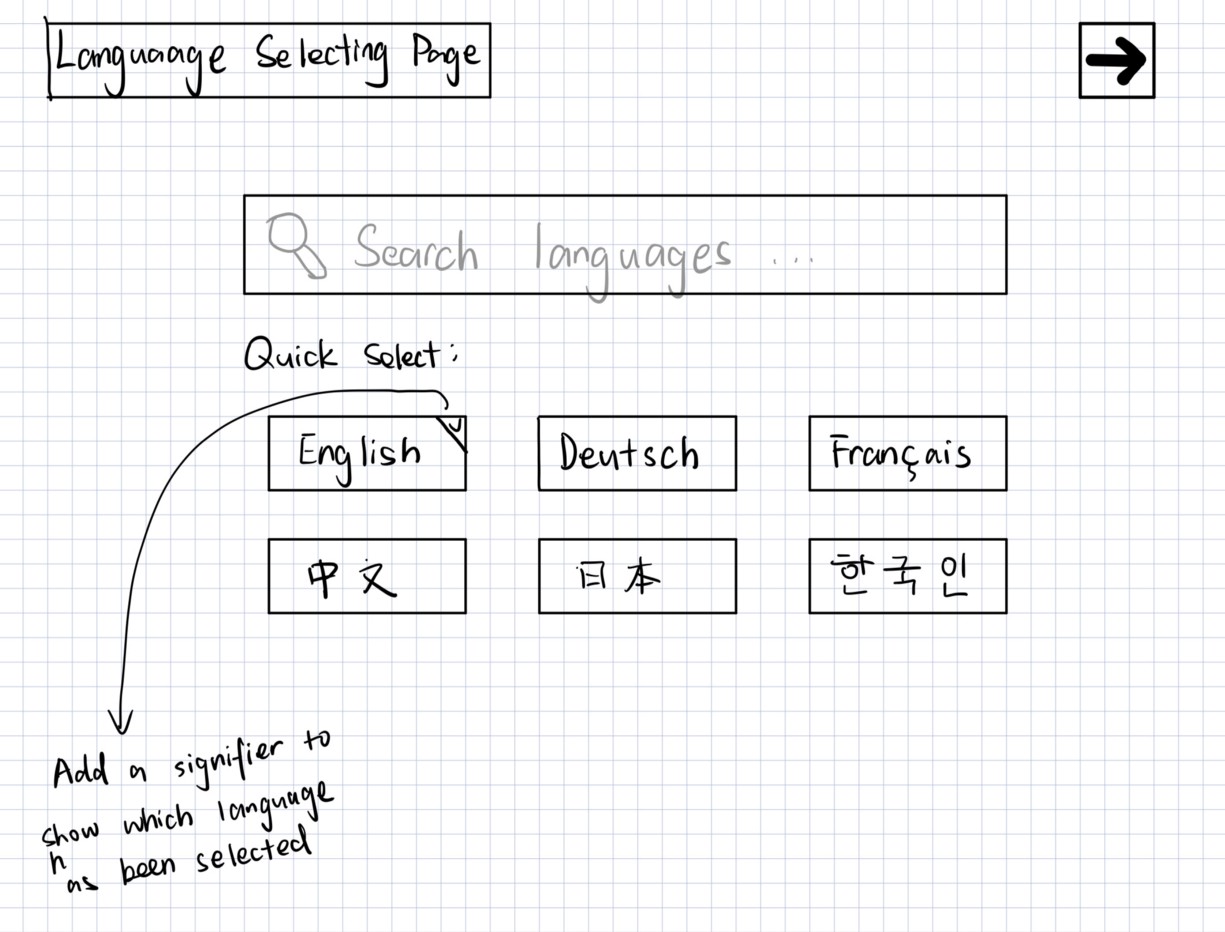 Languaage Selecting Page
Search languages ...
Quick Select:
English
Deutsch
Français
中文
日本
한국인
Add a signifier to
show which language
has been selected